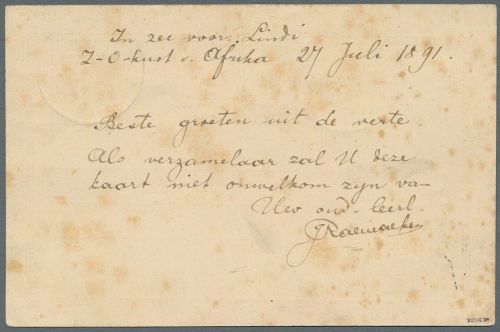 In zee voor Lindi
Z-O-kust v. Afrika 27 Juli 1891.
Beste groeten uit de verte.
Als verzamelaar zal U deze
kaart niet onwelkom zijn van
Uw oud-leerl.
JRaemaekers